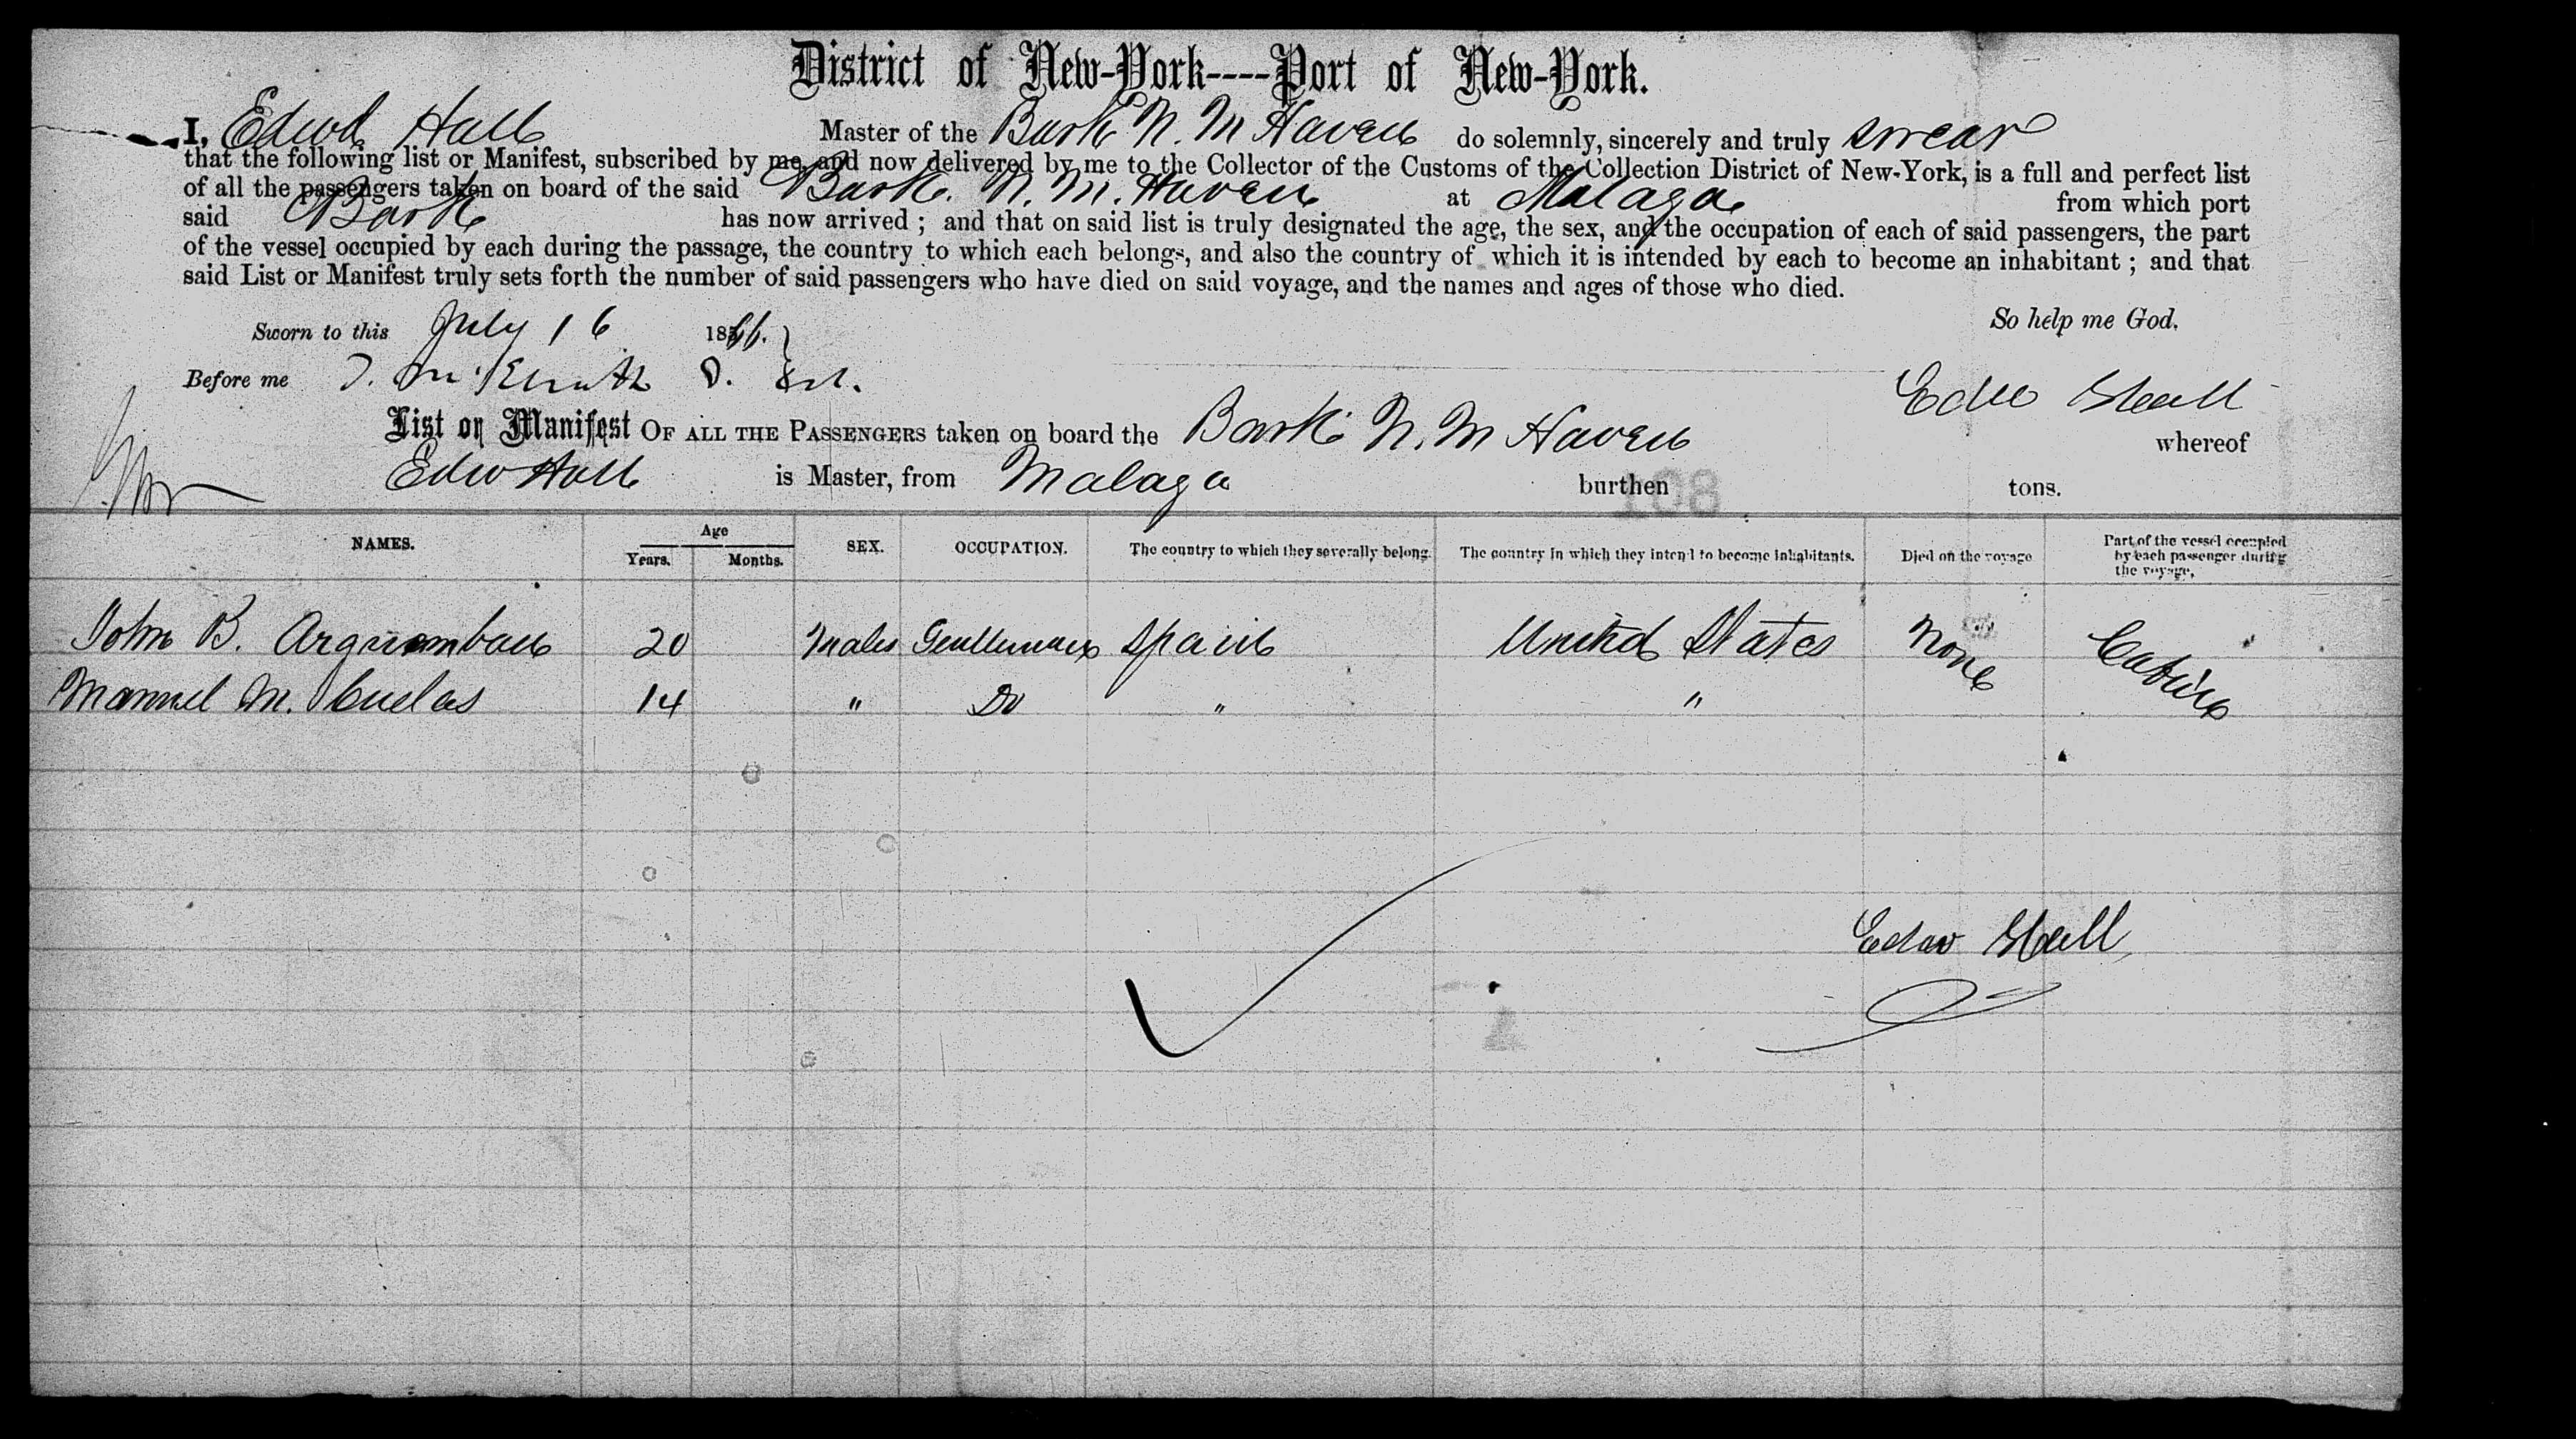 District of New-York----Port of New-York.
I, Edwd Hall Master of the Bark N. M Haven do solemnly, sincerely and truly swear
that the following list or Manifest, subscribed by me, and now delivered by me to the Collector of the Customs of the Collection District of New-York, is a full and perfect list
of all the passengers taken on board of the said Bark. N. M. Haven at Malaga from which port
said Bark has now arrived ; and that on said list is truly designated the age, the sex, and the occupation of each of said passengers, the part
of the vessel occupied by each during the passage, the country to which each belongs, and also the country of which it is intended by each to become an inhabitant ; and that
said List or Manifest truly sets forth the number of said passengers who have died on said voyage, and the names and ages of those who died.
So help me God.
Sworn to this July 16 1866.
Before me
Edw Hall
List or Manifest OF ALL THE PASSENGERS taken on board the Bark N. M Haven whereof
Edw Hall is Master, from Malaga burthen tons.
108
NAMES. Age Years. Months. SEX. OCCUPATION. The country to which they severally belong. The country in which they intend to become inhabitants. Died on the voyage Part of the vessel occupied by each passenger during the voyage.
John B. Arguimbau 20 Males Gentleman Spain United States None Cabin
Manuel M. Cuelas 14 " Do " "
Edw Hall